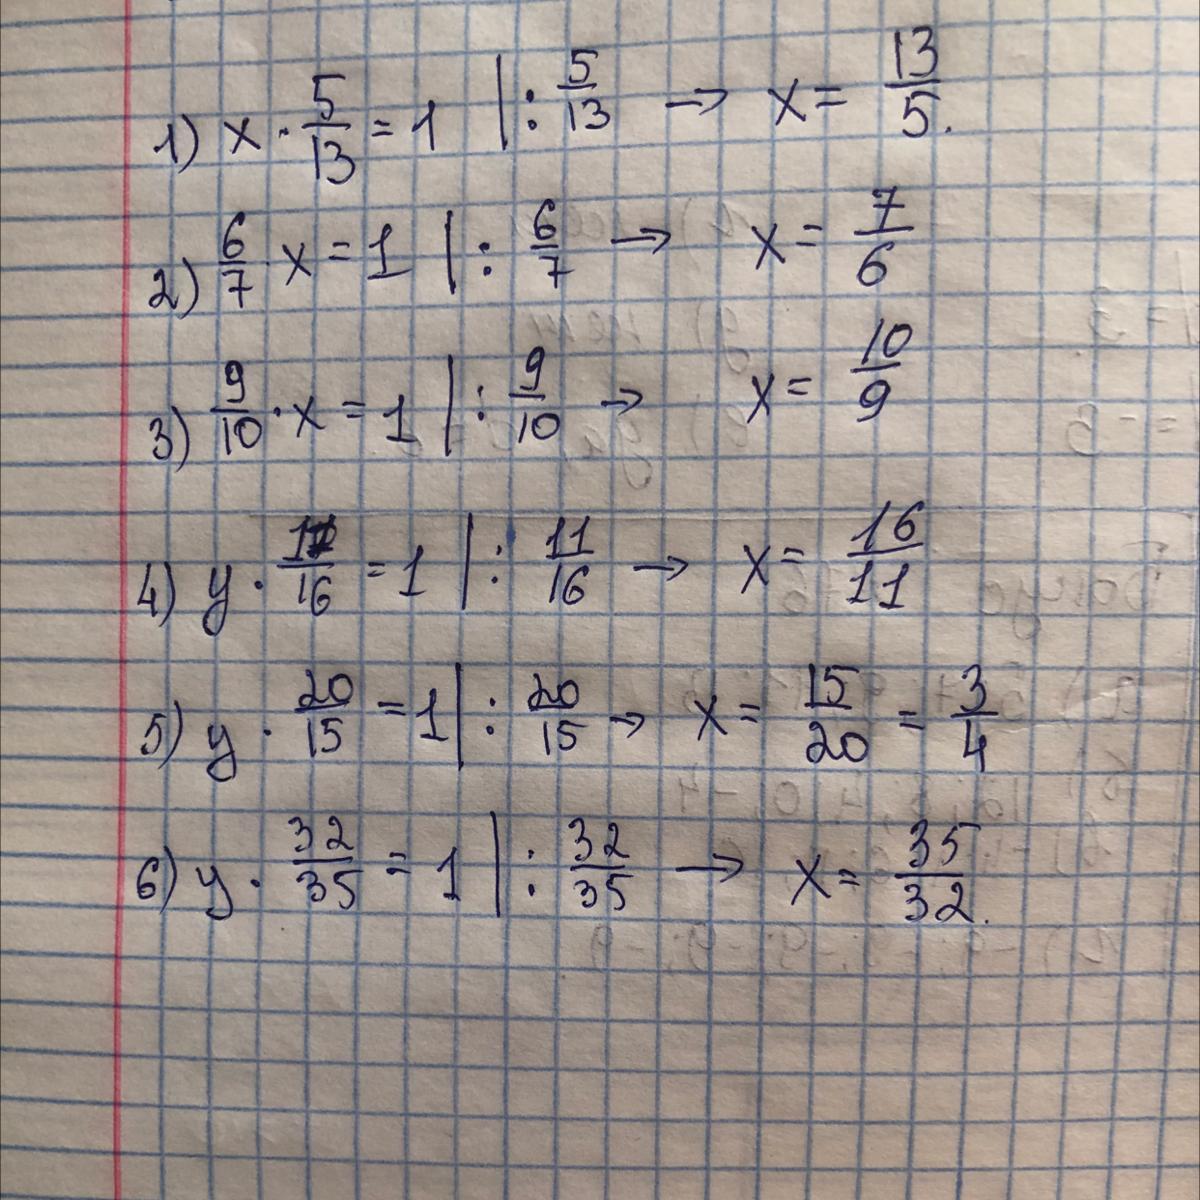 1) x · 5/13 = 1 | : 5/13 → x = 13/5.
2) 6/7 · x = 1 | : 6/7 → x = 7/6
3) 9/10 · x = 1 | : 9/10 → x = 10/9
4) y · 11/16 = 1 | : 11/16 → x = 16/11
5) y · 20/15 = 1 | : 20/15 → x = 15/20 = 3/4
6) y · 32/35 = 1 | : 32/35 → x = 35/32.